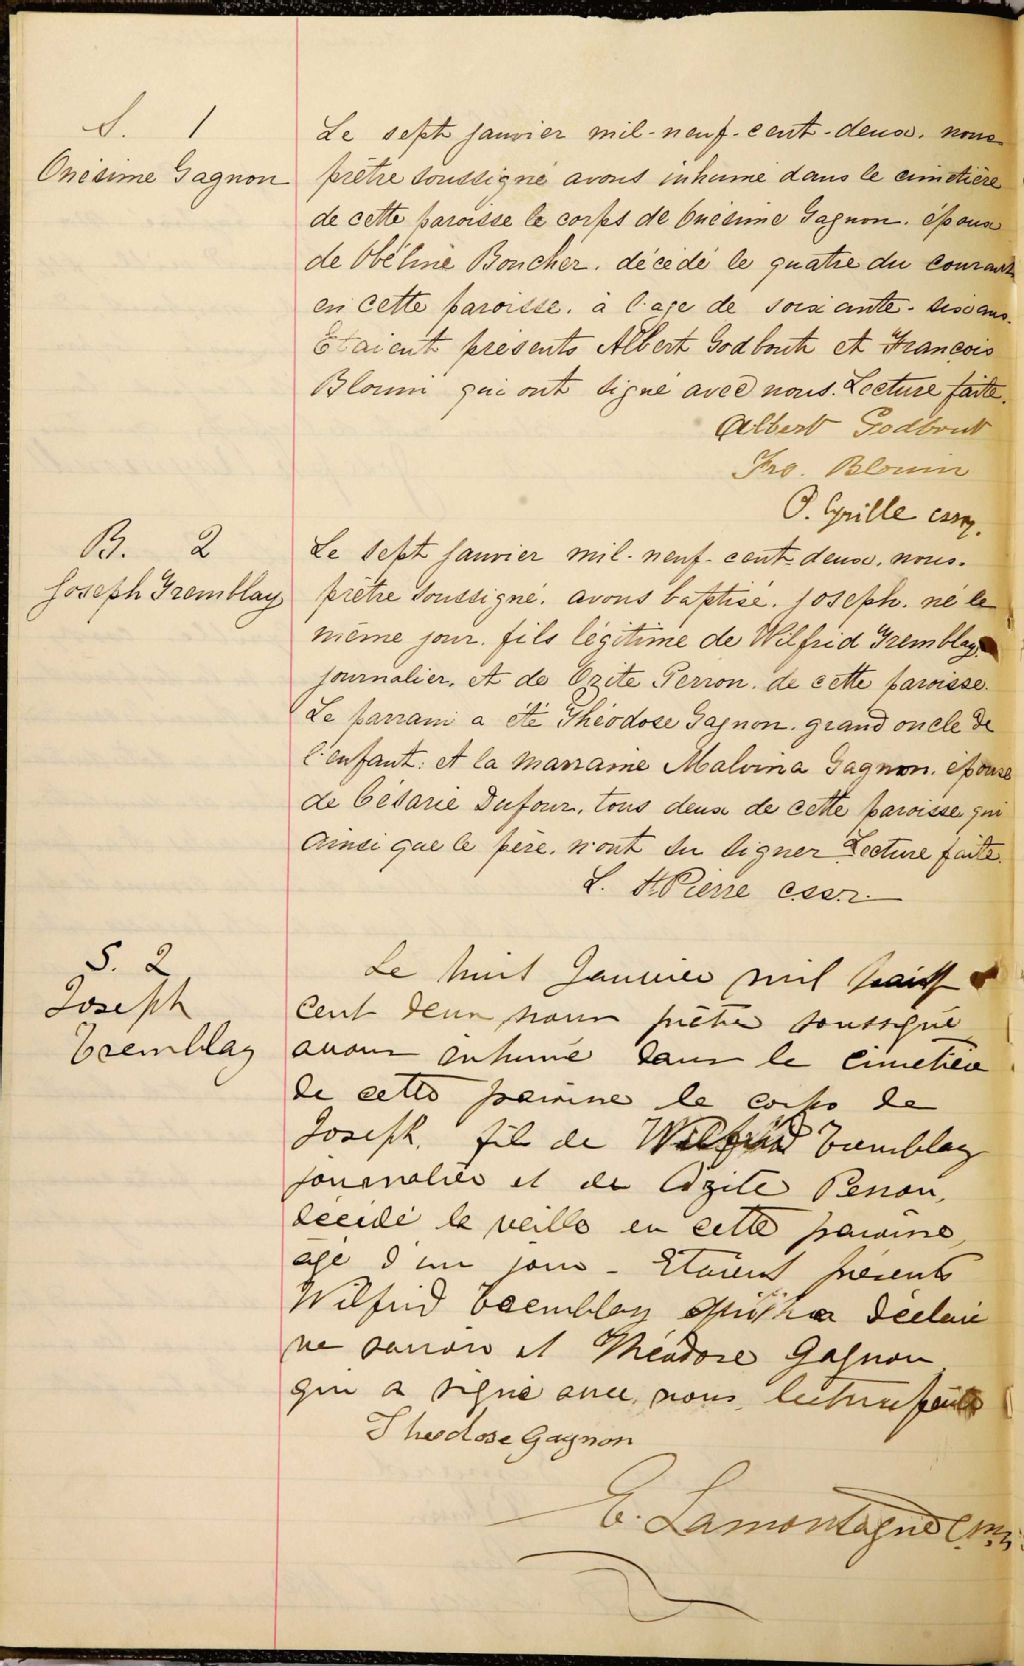 S. 1
Onésime Gagnon
Le sept janvier mil-neuf-cent-deux, nous
prêtre soussigné avons inhumé dans le cimetière
de cette paroisse le corps de Onésime Gagnon, époux
de Obéline Boucher, décédé le quatre du courant
en cette paroisse, à l'age de soixante-six ans.
Etaient présents Albert Godbout et François
Blouin qui ont signé avec nous. Lecture faite.
Albert Godbout
Frs. Blouin
P. Cyrille cssr.
B. 2
Joseph Tremblay
Le sept janvier mil-neuf-cent-deux, nous
prêtre soussigné, avons baptisé, Joseph, né le
même jour, fils légitime de Wilfrid Tremblay,
journalier, et de Ozite Perron, de cette paroisse.
Le parrain a été Théodose Gagnon, grand oncle de
l'enfant: et la marraine Malvina Gagnon, épouse
de Césarie Dufour, tous deux de cette paroisse qui
ainsi que le père, n'ont su signer Lecture faite.
L. St Pierre c.ss.r.
S. 2
Joseph
Tremblay
Le huit Janvier mil
cent deux nous prêtre soussigné
avons inhumé dans le cimetière
de cette paroisse le corps de
Joseph, fils de Wilfrid Tremblay
journalier et de Ozite Perron,
décédé la veille en cette paroisse,
agé d'un jour - Etaient présents
Wilfrid Tremblay qui a déclaré
ne savoir et Théodose Gagnon
qui a signé avec nous, lecture faite
Theodose Gagnon
E. Lamontagne